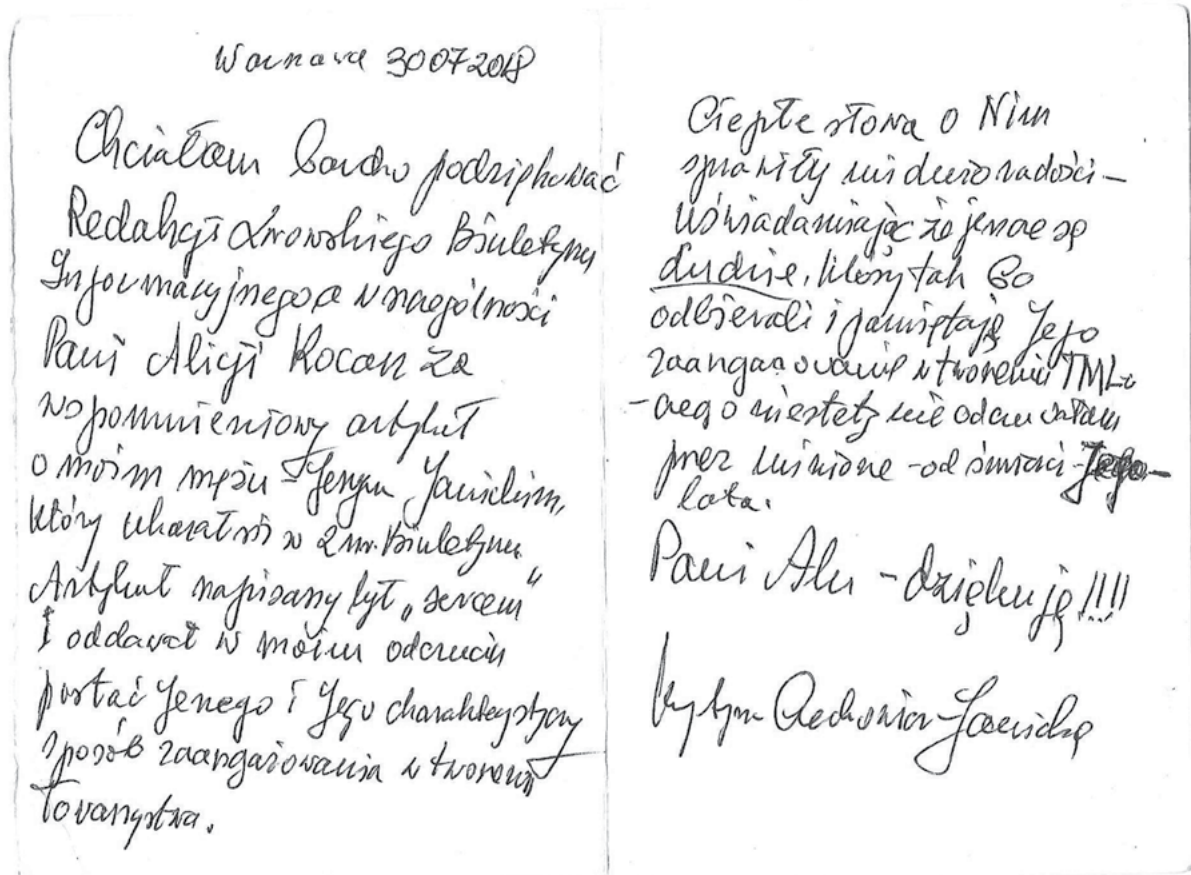 Warszawa 30072018
Chciałam bardzo podziękować
Redakcji Lwowskiego Biuletynu
Informacyjnego a w szczególności
Pani Alicji Kocan za
wspomnieniowy artykuł
o moim mężu – Jerzym Janickim,
który ukazał się w 2 nr. Biuletynu.
Artykuł napisany był „sercem"
i oddawał w moim odczuciu
postać Jerzego i Jego charakterystyczny
sposób zaangażowania w tworzeniu
Towarzystwa.
Ciepłe słowa o Nim
sprawiły mi dużo radości –
uświadamiając że jeszcze są
Ludzie, którzy tak Go
odbierali i pamiętają Jego
zaangażowanie w tworzeniu TML
– czego niestety nie odczuwałam
przez minione – od śmierci Jego –
lata.
Pani Alu – dziękuję!!!!
Krystyna Janicka